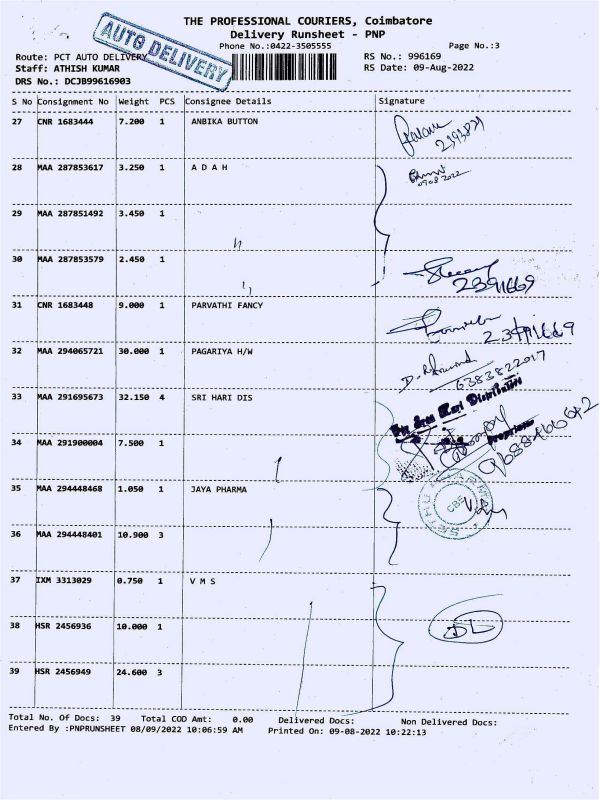 THE PROFESSIONAL COURIERS, Coimbatore
Delivery Runsheet - PNP
AUTO DELIVERY
Phone No.:0422-3505555 Page No.:3
Route: PCT AUTO DELIVERY RS No.: 996169
Staff: ATHISH KUMAR RS Date: 09-Aug-2022
DRS No.: DCJB99616903
S No Consignment No Weight PCS Consignee Details Signature
27 CNR 1683444 7.200 1 ANBIKA BUTTON
28 MAA 287853617 3.250 1 A D A H
09 08 2022
29 MAA 287851492 3.450 1
30 MAA 287853579 2.450 1
2391669
31 CNR 1683448 9.000 1 PARVATHI FANCY
32 MAA 294065721 30.000 1 PAGARIYA H/W
6383822017
33 MAA 291695673 32.150 4 SRI HARI DIS
Sri Hari Distributors
Proprietor
34 MAA 291900004 7.500 1
35 MAA 294448468 1.050 1 JAYA PHARMA
CBE
36 MAA 294448401 10.900 3
37 IXM 3313029 0.750 1 V M S
38 HSR 2456936 10.000 1
39 HSR 2456949 24.600 3
Total No. Of Docs: 39 Total COD Amt: 0.00 Delivered Docs: Non Delivered Docs:
Entered By :PNPRUNSHEET 08/09/2022 10:06:59 AM Printed On: 09-08-2022 10:22:13